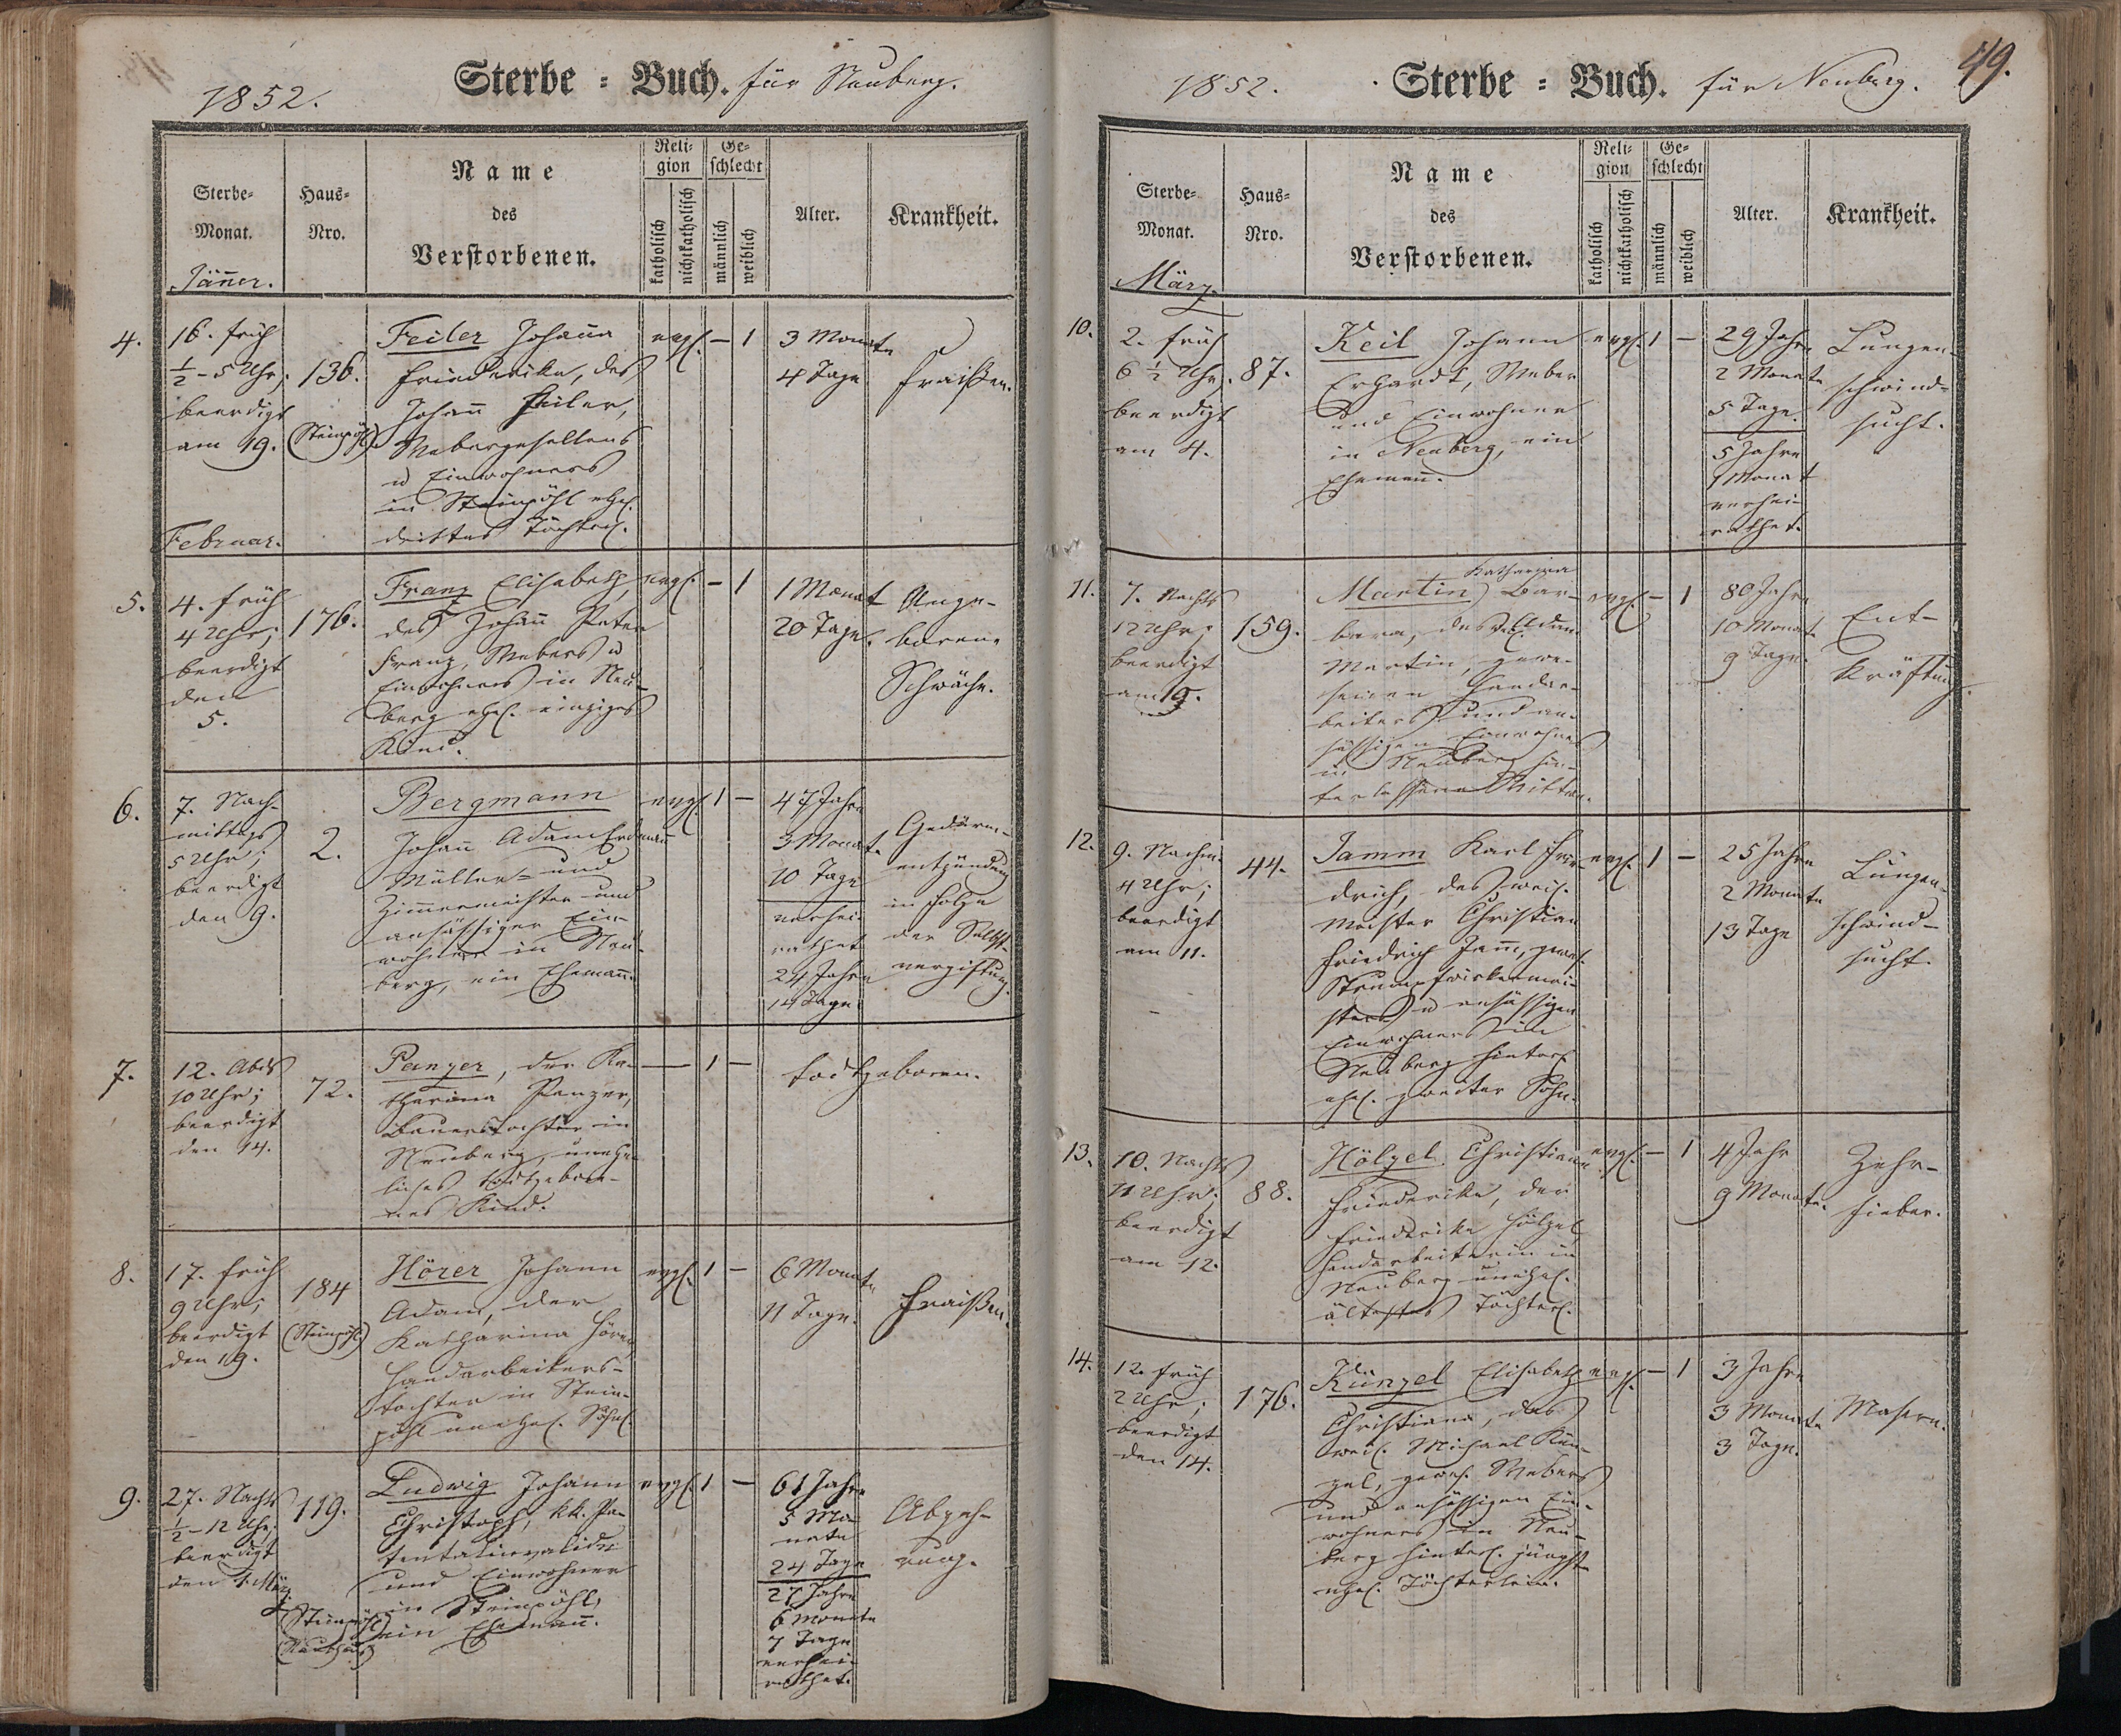 1852.
Sterbe = Buch. für Neuberg.
Sterbe-
Monat.
Haus-
Nro.
Name
des
Verstorbenen.
Reli-
gion
katholisch
nichtkatholisch
Ge-
schlecht
männlich
weiblich
Alter.
Krankheit.
Jänner.
4.
16. früh
½-5 Uhr;
beerdigt
am 19.
136.
(Steinpöhl)
Feiler Johanna
Friederika, des
Johann Feiler,
Webergesellens
u Einwohners
in Steinpöhl ehel.
drittes Töchterl.
evgl.
—
1
3 Monate
4 Tage.
Fraißen.
Februar.
5.
4. früh
4 Uhr;
beerdigt
den
5.
176.
Franz Elisabeth,
des Johann Peter
Franz, Webers u
Einwohners in Neu-
berg ehel. einziges
Kind.
evgl.
—
1
1 Monat
20 Tage.
Ange-
borene
Schwäche.
6.
7. Nach-
mittags
5 Uhr;
beerdigt
den 9.
2.
Bergmann
Johann Adam Erdmann
Müller- und
Zimmermeister und
ansässiger Ein-
wohner in Neu-
berg, ein Ehemann.
evgl.
1
—
47 Jahre
3 Monate
10 Tage
verhei-
rathet
24 Jahre
14 Tage.
Gedärm-
entzündung
in Folge
der Selbst-
vergiftung.
7.
12. Abds
10 Uhr;
beerdigt
den 14.
72.
Penzer, der Ka-
tharina Penzer,
Bauerstochter in
Neuberg, unehe-
liches todtgebore-
nes Kind.
—
1
—
todtgeboren.
8.
17. früh
9 Uhr;
beerdigt
den 19.
184
(Steinpöhl)
Hörer Johann
Adam, der
Katharina Hörer,
Handarbeiters-
tochter in Stein-
pöhl unehel. Söhnl.
evgl.
1
—
6 Monate
11 Tage.
Fraißen.
9.
27. Nachts
½-12 Uhr;
beerdigt
den 1. März
119.
(Steinpöhl)
Ludwig Johann
Christoph, kk. Pa-
tentalinvalide
und Einwohner
in Steinpöhl,
ein Ehemann.
evgl.
1
—
61 Jahre
5 Mo-
nate
24 Tage
27 Jahre
6 Monate
7 Tage
verhei-
rathet.
Abzeh-
rung.
1852.
Sterbe = Buch. für Neuberg.
49.
Sterbe-
Monat.
Haus-
Nro.
Name
des
Verstorbenen.
Reli-
gion
katholisch
nichtkatholisch
Ge-
schlecht
männlich
weiblich
Alter.
Krankheit.
März
10.
2. früh
6 ½ Uhr.
beerdigt
am 4.
87.
Keil Johann
Erhardt, Weber
und Einwohner
in Neuberg, ein
Ehemann.
evgl.
1
—
29 Jahre
2 Monate
5 Tage.
5 Jahre
1 Monat
verhei-
rathet.
Lungen-
schwind-
sucht.
11.
7. Nachts
12 Uhr;
beerdigt
am 9.
159.
Katharina
Martin Bar-
bara, des Adam
Martin, gewe-
senen Handar-
beiters und an-
sässigen Einwohners
in Neuberg hin-
terlassene Wittwe.
evgl.
—
1
80 Jahre
10 Monate
9 Tage.
Ent-
kräftung.
12.
9. Nachm.
4 Uhr;
beerdigt
am 11.
44.
Jamm Karl Frie-
drich, des weil.
Meister Christian
Friedrich Jamm, gewes.
Strumpfwirkermei-
sters u ansässigen
Einwohners in
Neuberg hinterl.
ehel. zweiter Sohn.
evgl.
1
—
25 Jahre
2 Monate
13 Tage
Lungen-
schwind-
sucht.
13.
10. Nachts
11 Uhr;
beerdigt
am 12.
88.
Hölzel Christiane
Friederike, der
Friederike Hölzel
Handarbeiterin in
Neuberg unehel.
ältestes Töchterl.
evgl.
—
1
4 Jahr
9 Monate.
Zehr-
fieber.
14.
12. früh
2 Uhr;
beerdigt
den 14.
176.
Künzel Elisabeth
Christiana, des
weil. Michael Kün-
zel, gewes. Webers
und ansässigen Ein-
wohners in Neu-
berg hinterl. jüngst
ehel. Töchterlein.
evgl.
—
1
3 Jahre
3 Monate
3 Tage.
Masern.